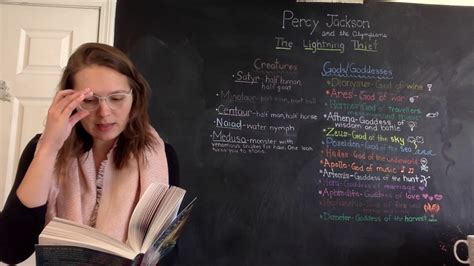 Percy Jackson
and the Olympians
The Lightning Thief
Creatures
- Satyr- half human
half goat
- Minotaur- part man, part bull
- Centaur- half man, half horse
- Naiad- water nymph
- Medusa- monster with
venomous snakes for hair. One look
turns you to stone.
Gods/Goddesses
- Dionysus- God of wine
- Ares- God of war
- Hermes- God of travellers
- Athena- Goddess of
wisdom and battle
- Zeus- God of the sky
- Poseidon- God of the sea
- Hades- God of the underworld
- Apollo- God of music
- Artemis- Goddess of the hunt
- Hera- Goddess of marriage
- Aphrodite- Goddess of love
- Demeter- Goddess of the harvest